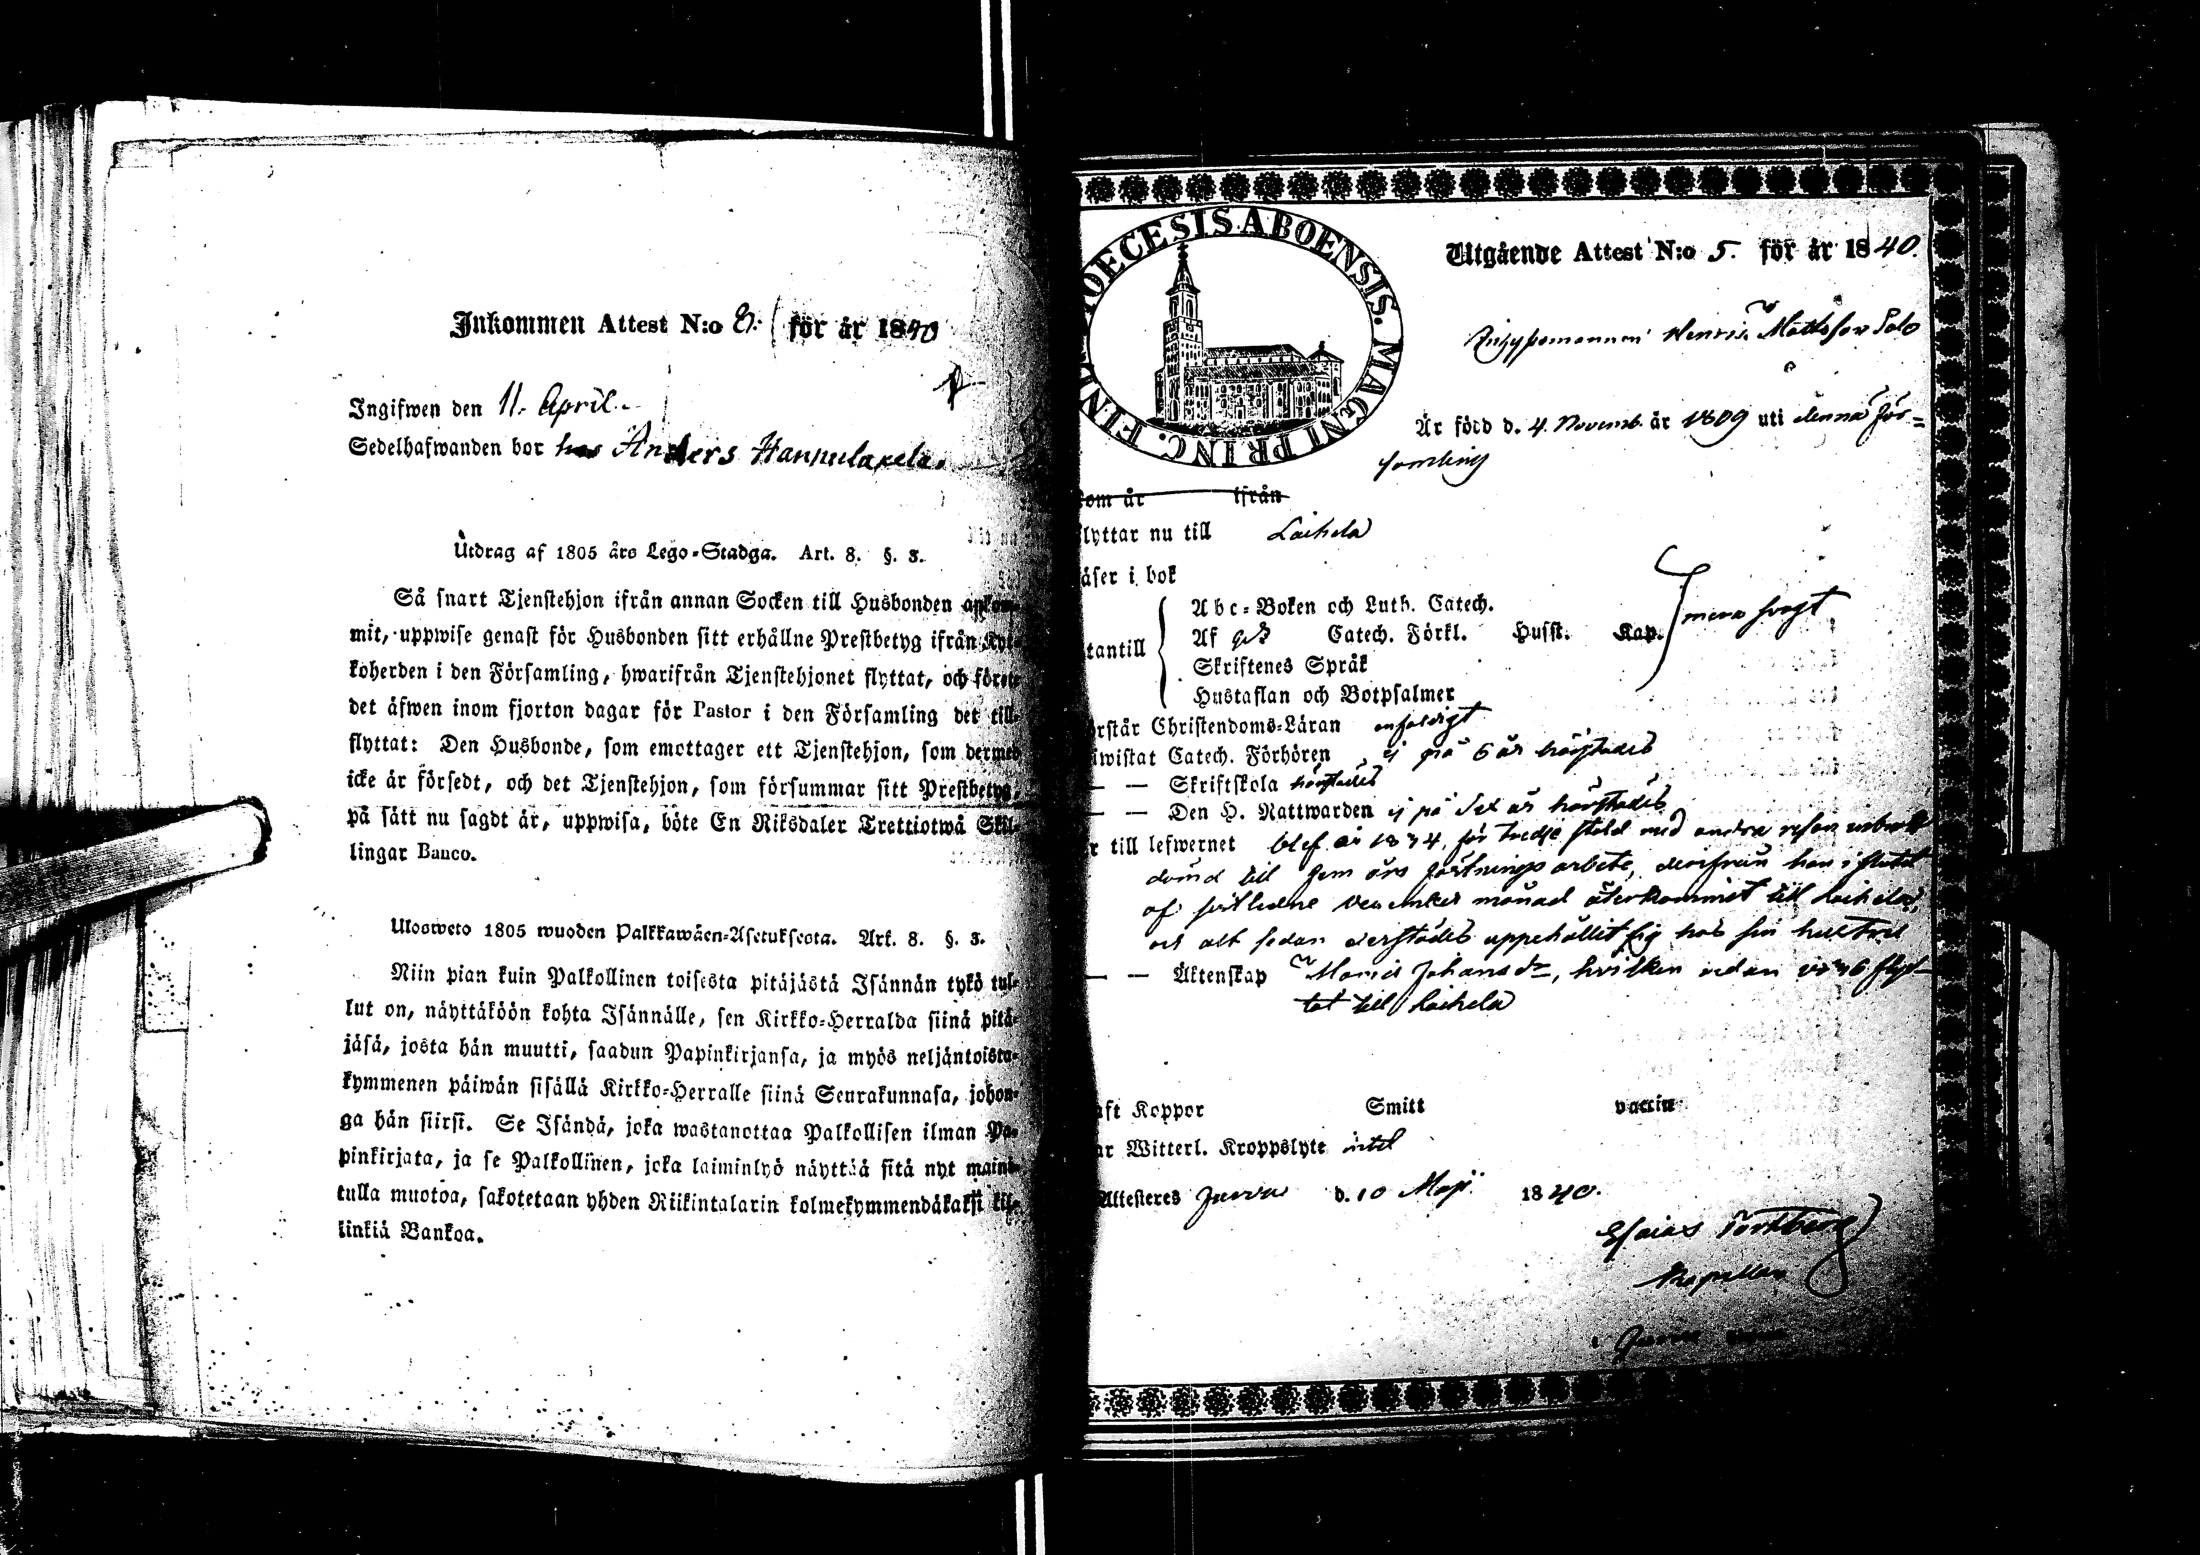 Inkommen Attest N:o 8. för år 1840
Ingifwen den 11. April.
Sedelhafwanden bor hos Anders Hannulaxela.
Utdrag af 1805 års Lego-Stadga. Art. 8. §. 3.
Så snart Tjenstehjon ifrån annan Socken till Husbonden ankom-
mit, uppwise genast för Husbonden sitt erhållne Prestbetyg ifrån Kyr-
koherden i den Församling, hwarifrån Tjenstehjonet flyttat, och förete
det äfwen inom fjorton dagar för Pastor i den Församling det till-
flyttat: Den Husbonde, som emottager ett Tjenstehjon, som dermed
icke är försedt, och det Tjenstehjon, som försummar sitt Prestbetyg,
på sätt nu sagdt är, uppwisa, böte En Riksdaler Trettiotwå Skil-
lingar Banco.
Ulosweto 1805 wuoden Palkkawäen-Asetuksesta. Art. 8. §. 3.
Niin pian kuin Palkollinen toisesta pitäjästä Isännän tykö tul-
lut on, näyttäköön kohta Isännälle, sen Kirkko-Herralda siinä pitä-
jäsä, josta hän muutti, saadun Papinkirjansa, ja myös neljäntoista-
kymmenen päiwän sisällä Kirkko-Herralle siinä Seurakunnasa, johon-
ga hän siirsi. Se Isändä, joka wastanottaa Palkollisen ilman Pa-
pinkirjata, ja se Palkollinen, joka laiminlyö näyttää sitä nyt maini-
tulla muotoa, sakotetaan yhden Riikintalarin kolmekymmendäkaksi kil-
linkiä Bankoa.
OECESIS ABOENSIS. MAGNI PRINC. FIN
Utgående Attest N:o 5. för år 1840.
Henric Mattsson Palo
Är född d. 4. Novemb. år 1809 uti denna För-
samling
om år ifrån
lyttar nu till Laihela
äser i bok
Abc-Boken och Luth. Catech.
Af Catech. Förkl. Husst. Kap.
tantill
Skriftenes Språk
Hustaflan och Botpsalmer
mera svagt
rstår Christendoms-Läran enfaldigt
wistat Catech. Förhören ej på 6 år härstädes
— — Skriftskola härstädes
— — Den H. Nattwarden ej på sex år härstädes
r till lefwernet blef år 1834, för tredje stöld med andra resan
dömd till fem års fästnings arbete, derifrån han i slutet
af sistledne December månad återkommit till Laihela,
och allt sedan derstädes uppehållit sig hos sin hustru
— — Äktenskap Maria Johansdr, hvilken redan flyt-
tat till Laihela
aft Koppor Smitt vaccin
ar Witterl. Kroppslyte intet
Attesteres Jurva d. 10 Maji 1840.
Esaias
Kapellan
i Jurva